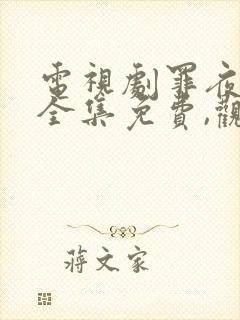 電視劇罪夜
全集免費,觀
蔣文家